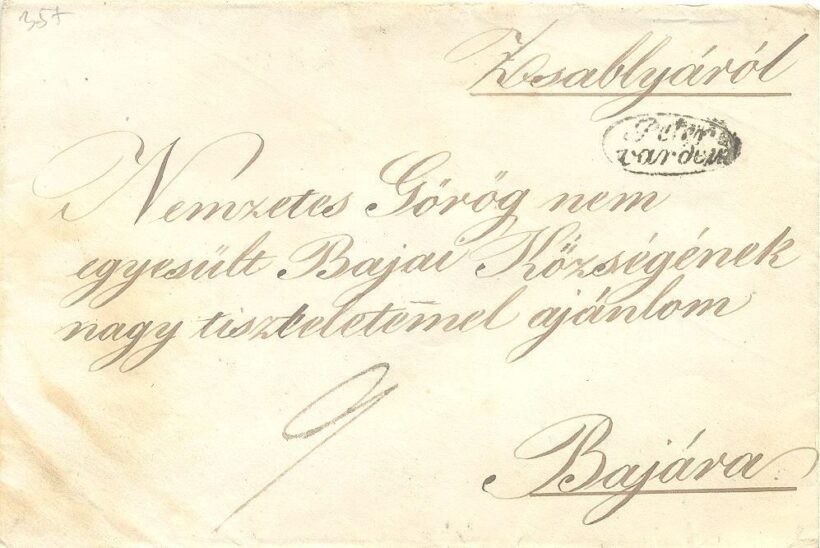 Zsablyáról
Peter
varden
Nemzetes Görög nem
egyesült Bajai Községének
nagy tiszteletemel ajánlom
9
Bajára